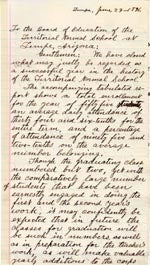 Tempe, June 23rd 1896.
To the Board of Education of the
Territorial Normal School at
Tempe, Arizona;
Gentlemen: We have closed
what may justly be regarded as
a successful year in the history
of the Territorial Normal School.
The accompanying tabulated re-
port shows a total enrollment
for the year of fifty five
an average daily attendance of
thirty four and six-tenths for the
entire term, and a percentage
of attendance of ninety five and
two-tenths on the average
number belonging.
Though the graduating class
numbered but two, yet with
the comparatively large number
of students that have been
earnestly engaged in doing the
first and the second years
work, it may confidently be
expected that in future the
classes for graduation will
be such in numbers, as well
as in preparation for the teachers
work, as will make valuable
yearly additions to the corps